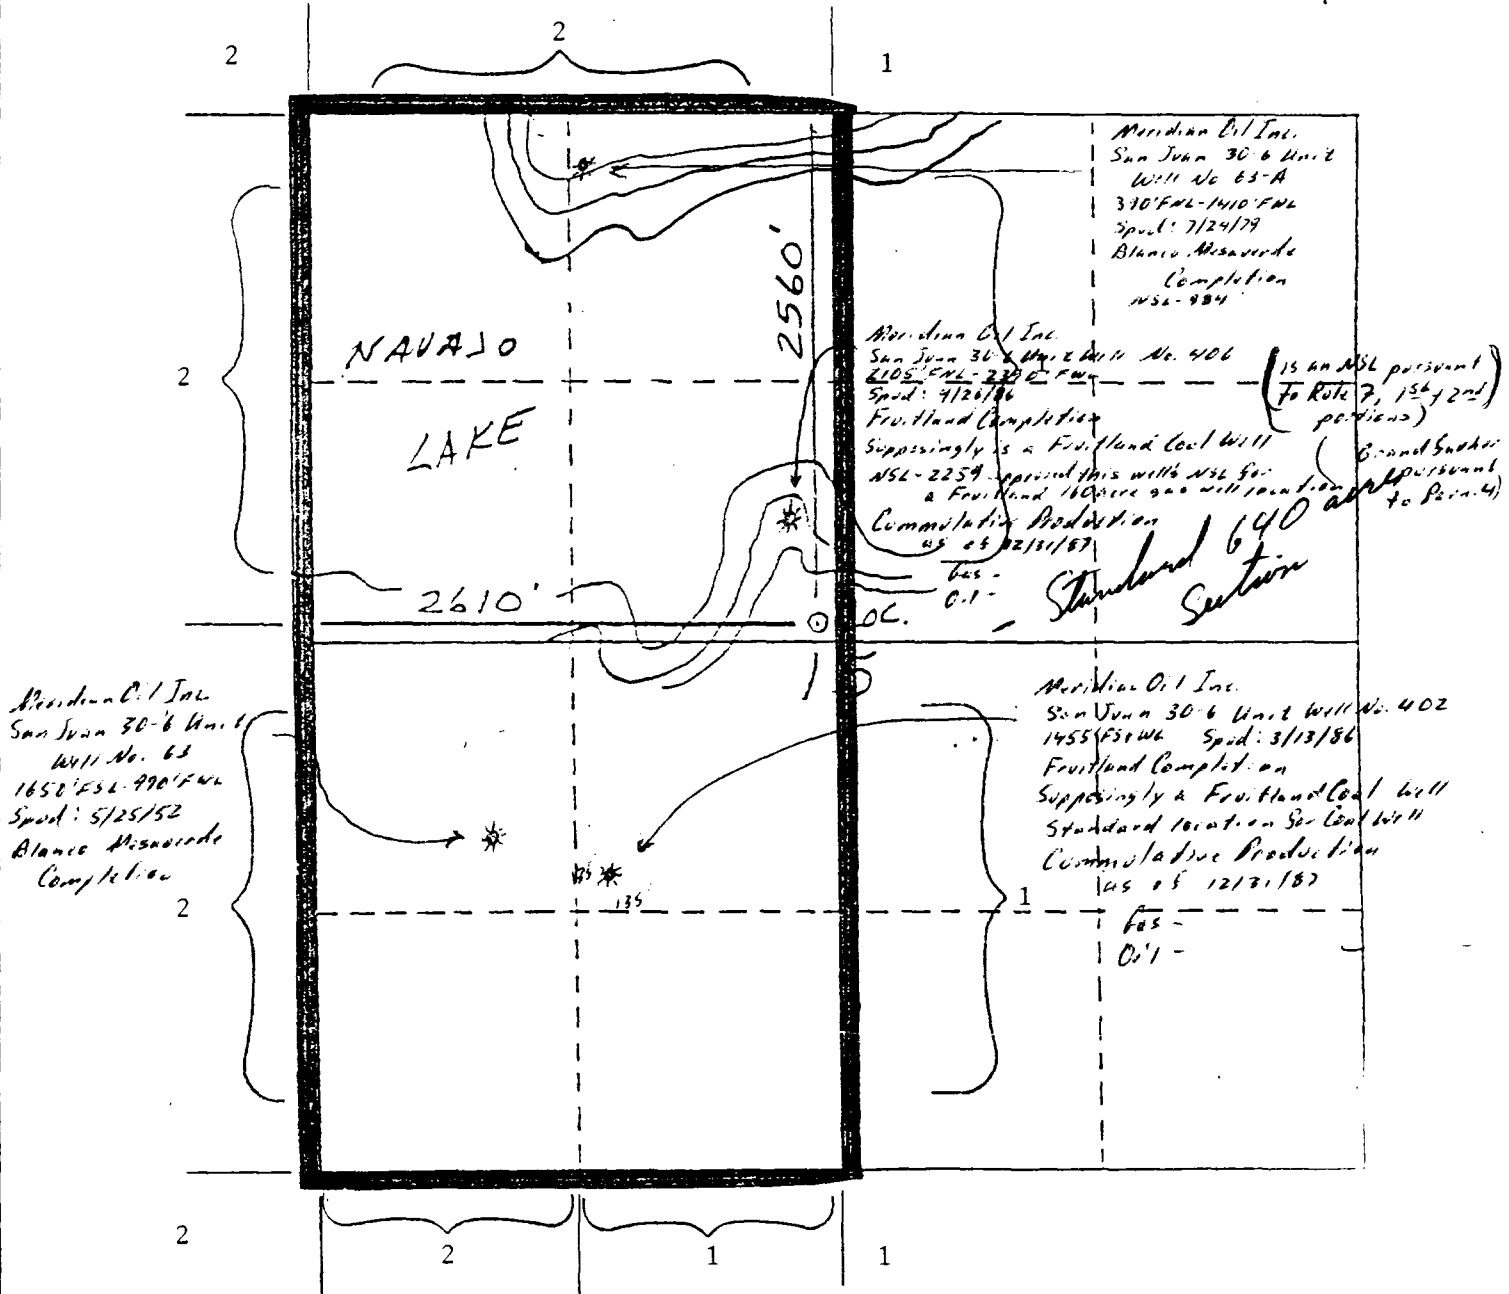 2
2
1
Meridian Oil Inc.
San Juan 30-6 Unit
Well No 63-A
390'FNL-1410'FWL
Spud: 7/24/79
Blanco Mesaverde
Completion
NSL-984
2560'
NAVAJO
LAKE
2
Meridian Oil Inc.
San Juan 30-6 Unit Well No. 406
2105'FNL-2390'FWL
Spud: 4/26/86
Fruitland Completion
Supposingly is a Fruitland Coal Well
NSL-2259 approved this well's NSL for
a Fruitland 160 acre gas well location
Commulative Production
as of 12/31/87
Gas -
Oil -
(is an NSL pursuant
to Rule 7, 1st & 2nd
portions)
pursuant
to
Standard 640 acre
Section
2610'
LOC.
15
Meridian Oil Inc.
San Juan 30-6 Unit
Well No. 63
1650'FSL-990'FWL
Spud: 5/25/52
Blanco Mesaverde
Completion
2
Meridian Oil Inc.
San Juan 30-6 Unit Well No. 402
1455'FS&WL Spud: 3/13/86
Fruitland Completion
Supposingly a Fruitland Coal Well
Standard location for Coal Well
Commulative Production
as of 12/31/87
Gas -
Oil -
135
1
2
2
1
1